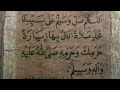 اللهم صل وسلم على سيدنا
محمد صلاة ننال بها زيارة
حرمك وحرمه صلى الله عليه
وآله وسلم